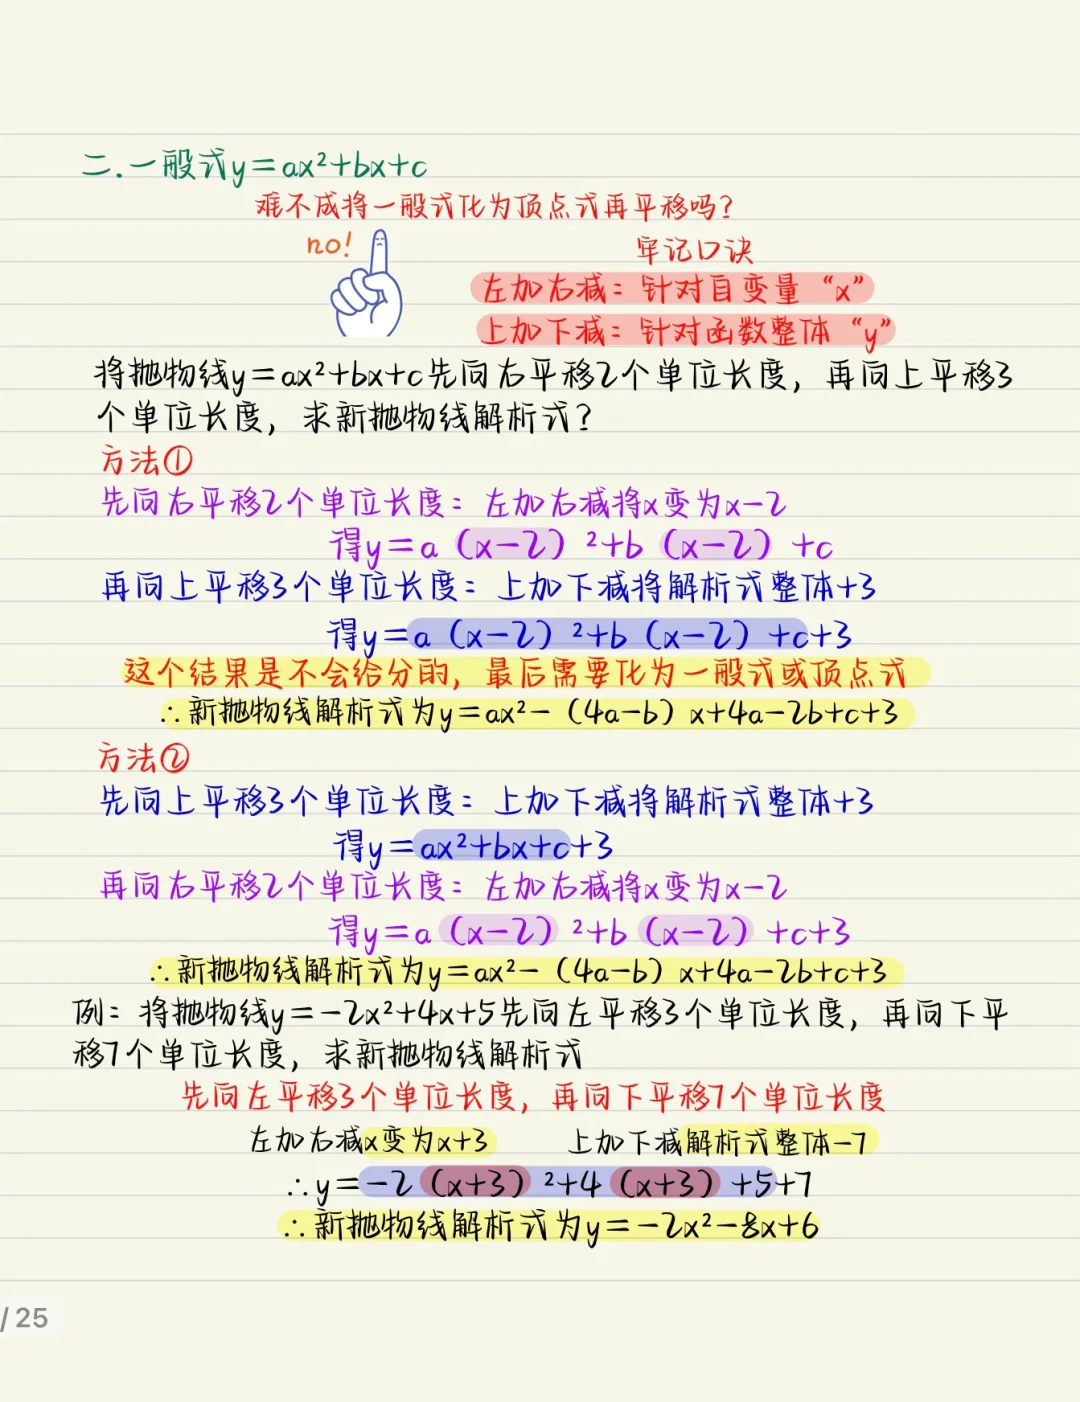 二.一般式y=ax²+bx+c
难不成将一般式化为顶点式再平移吗?
no!
牢记口诀
左加右减:针对自变量“x”
上加下减:针对函数整体“y”
将抛物线y=ax²+bx+c先向右平移2个单位长度,再向上平移3
个单位长度,求新抛物线解析式?
方法①
先向右平移2个单位长度:左加右减将x变为x-2
得y=a(x-2)²+b(x-2)+c
再向上平移3个单位长度:上加下减将解析式整体+3
得y=a(x-2)²+b(x-2)+c+3
这个结果是不会给分的,最后需要化为一般式或顶点式
∴新抛物线解析式为y=ax²-(4a-b)x+4a-2b+c+3
方法②
先向上平移3个单位长度:上加下减将解析式整体+3
得y=ax²+bx+c+3
再向右平移2个单位长度:左加右减将x变为x-2
得y=a(x-2)²+b(x-2)+c+3
∴新抛物线解析式为y=ax²-(4a-b)x+4a-2b+c+3
例:将抛物线y=-2x²+4x+5先向左平移3个单位长度,再向下平
移7个单位长度,求新抛物线解析式
先向左平移3个单位长度,再向下平移7个单位长度
左加右减x变为x+3 上加下减解析式整体-7
∴y=-2(x+3)²+4(x+3)+5+7
∴新抛物线解析式为y=-2x²-8x+6
/ 25